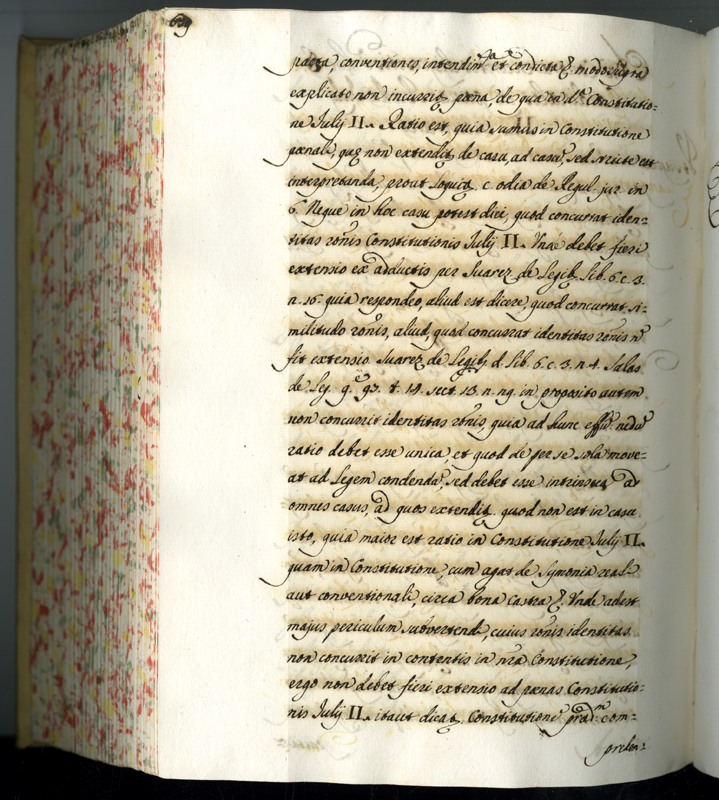 pacta, conventiones, intendim.ta et condicta &. modo supra
explicato non incurrit pœna, de qua in d.a Constitutio=
ne Julij II. Ratio est, quia sumus in Constitutione
pœnali, quæ non extendit de casu, ad casũ, sed stricte est
interpretanda, prout loquit. c. odia de Regul. jur. in
6. Neque in hoc casu potest dici, quod concurrat iden=
titas rõnis Constitutionis Julij II. Vnde debet fieri
extensio ex adductis per Suarez de Legib. lib. 6. c. 3.
n. 16. quia respondeo, aliud est dicere, quod concurrat si=
militudo rõnis, aliud, quod concurrat identitas rõnis ñ
fit extensio Suarez de Legib. d. lib. 6. c. 3. n. 4. Salas
de Leg. q. 97. t. 14. sect. 13. n. 119. in proposito autem
non concurrit identitas rõnis, quia ad hunc effũ. nedũ
ratio debet esse unica, et quod de per se sola move=
at ad Legem condendã, sed debet esse intrinseca ad
omnes casus, ad quos extendit. quod non est in casu
isto, quia maior est ratio in Constitutione Julij II.
quam in Constitutione, cum agat de Symonia reali
aut conventionali, circa bona Castra &. Vnde adest
majus periculum subvertendi, cuius rõnis identitas
non concurrit in contentis in nrã Constitutione,
ergo non debet fieri extensio ad pœnas Constitutio=
nis Julij II. itaut dicat, Constitutionẽ præd.m com=
prehen=